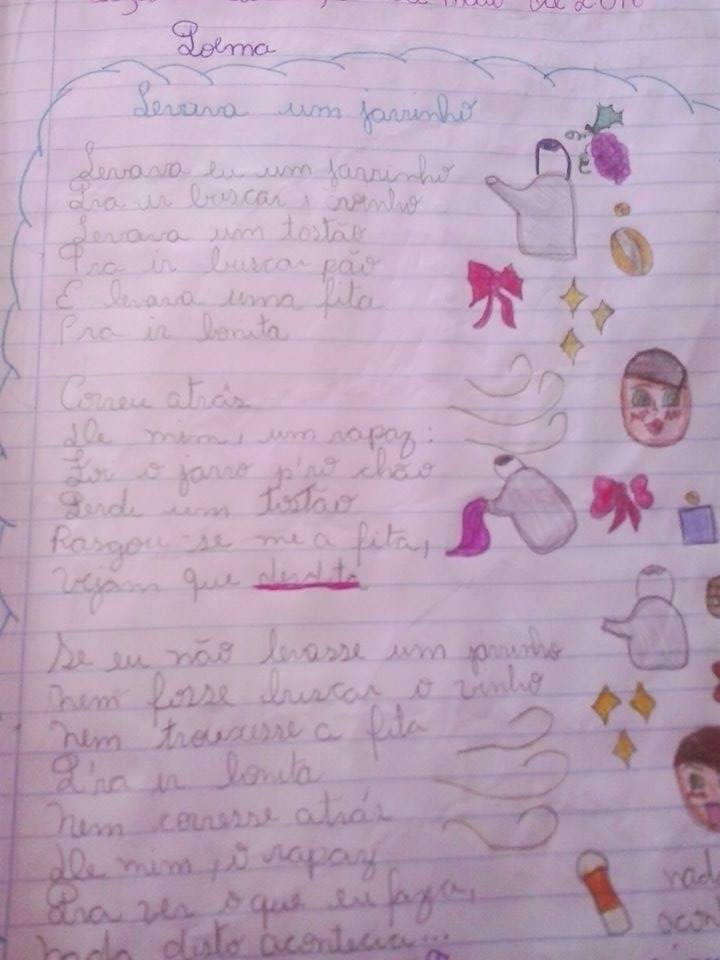 de maio de
Poema
Levava um jarrinho
Levava eu um jarrinho
Pra ir buscar, vinho
Levava um tostão
Pra ir buscar pão
E levava uma fita
Pra ir bonita
Correu atrás
De mim, um rapaz:
Foi o jarro p'ro chão
Perdi um tostão
Rasgou-se me a fita,
Vejam que desdita
Se eu não levasse um jarrinho
Nem fosse buscar o vinho
Nem trouxesse a fita
P'ra ir bonita
Nem corresse atrás
De mim, o rapaz
Pra ver o que eu fazia,
Nada disto acontecia...
nad
acon